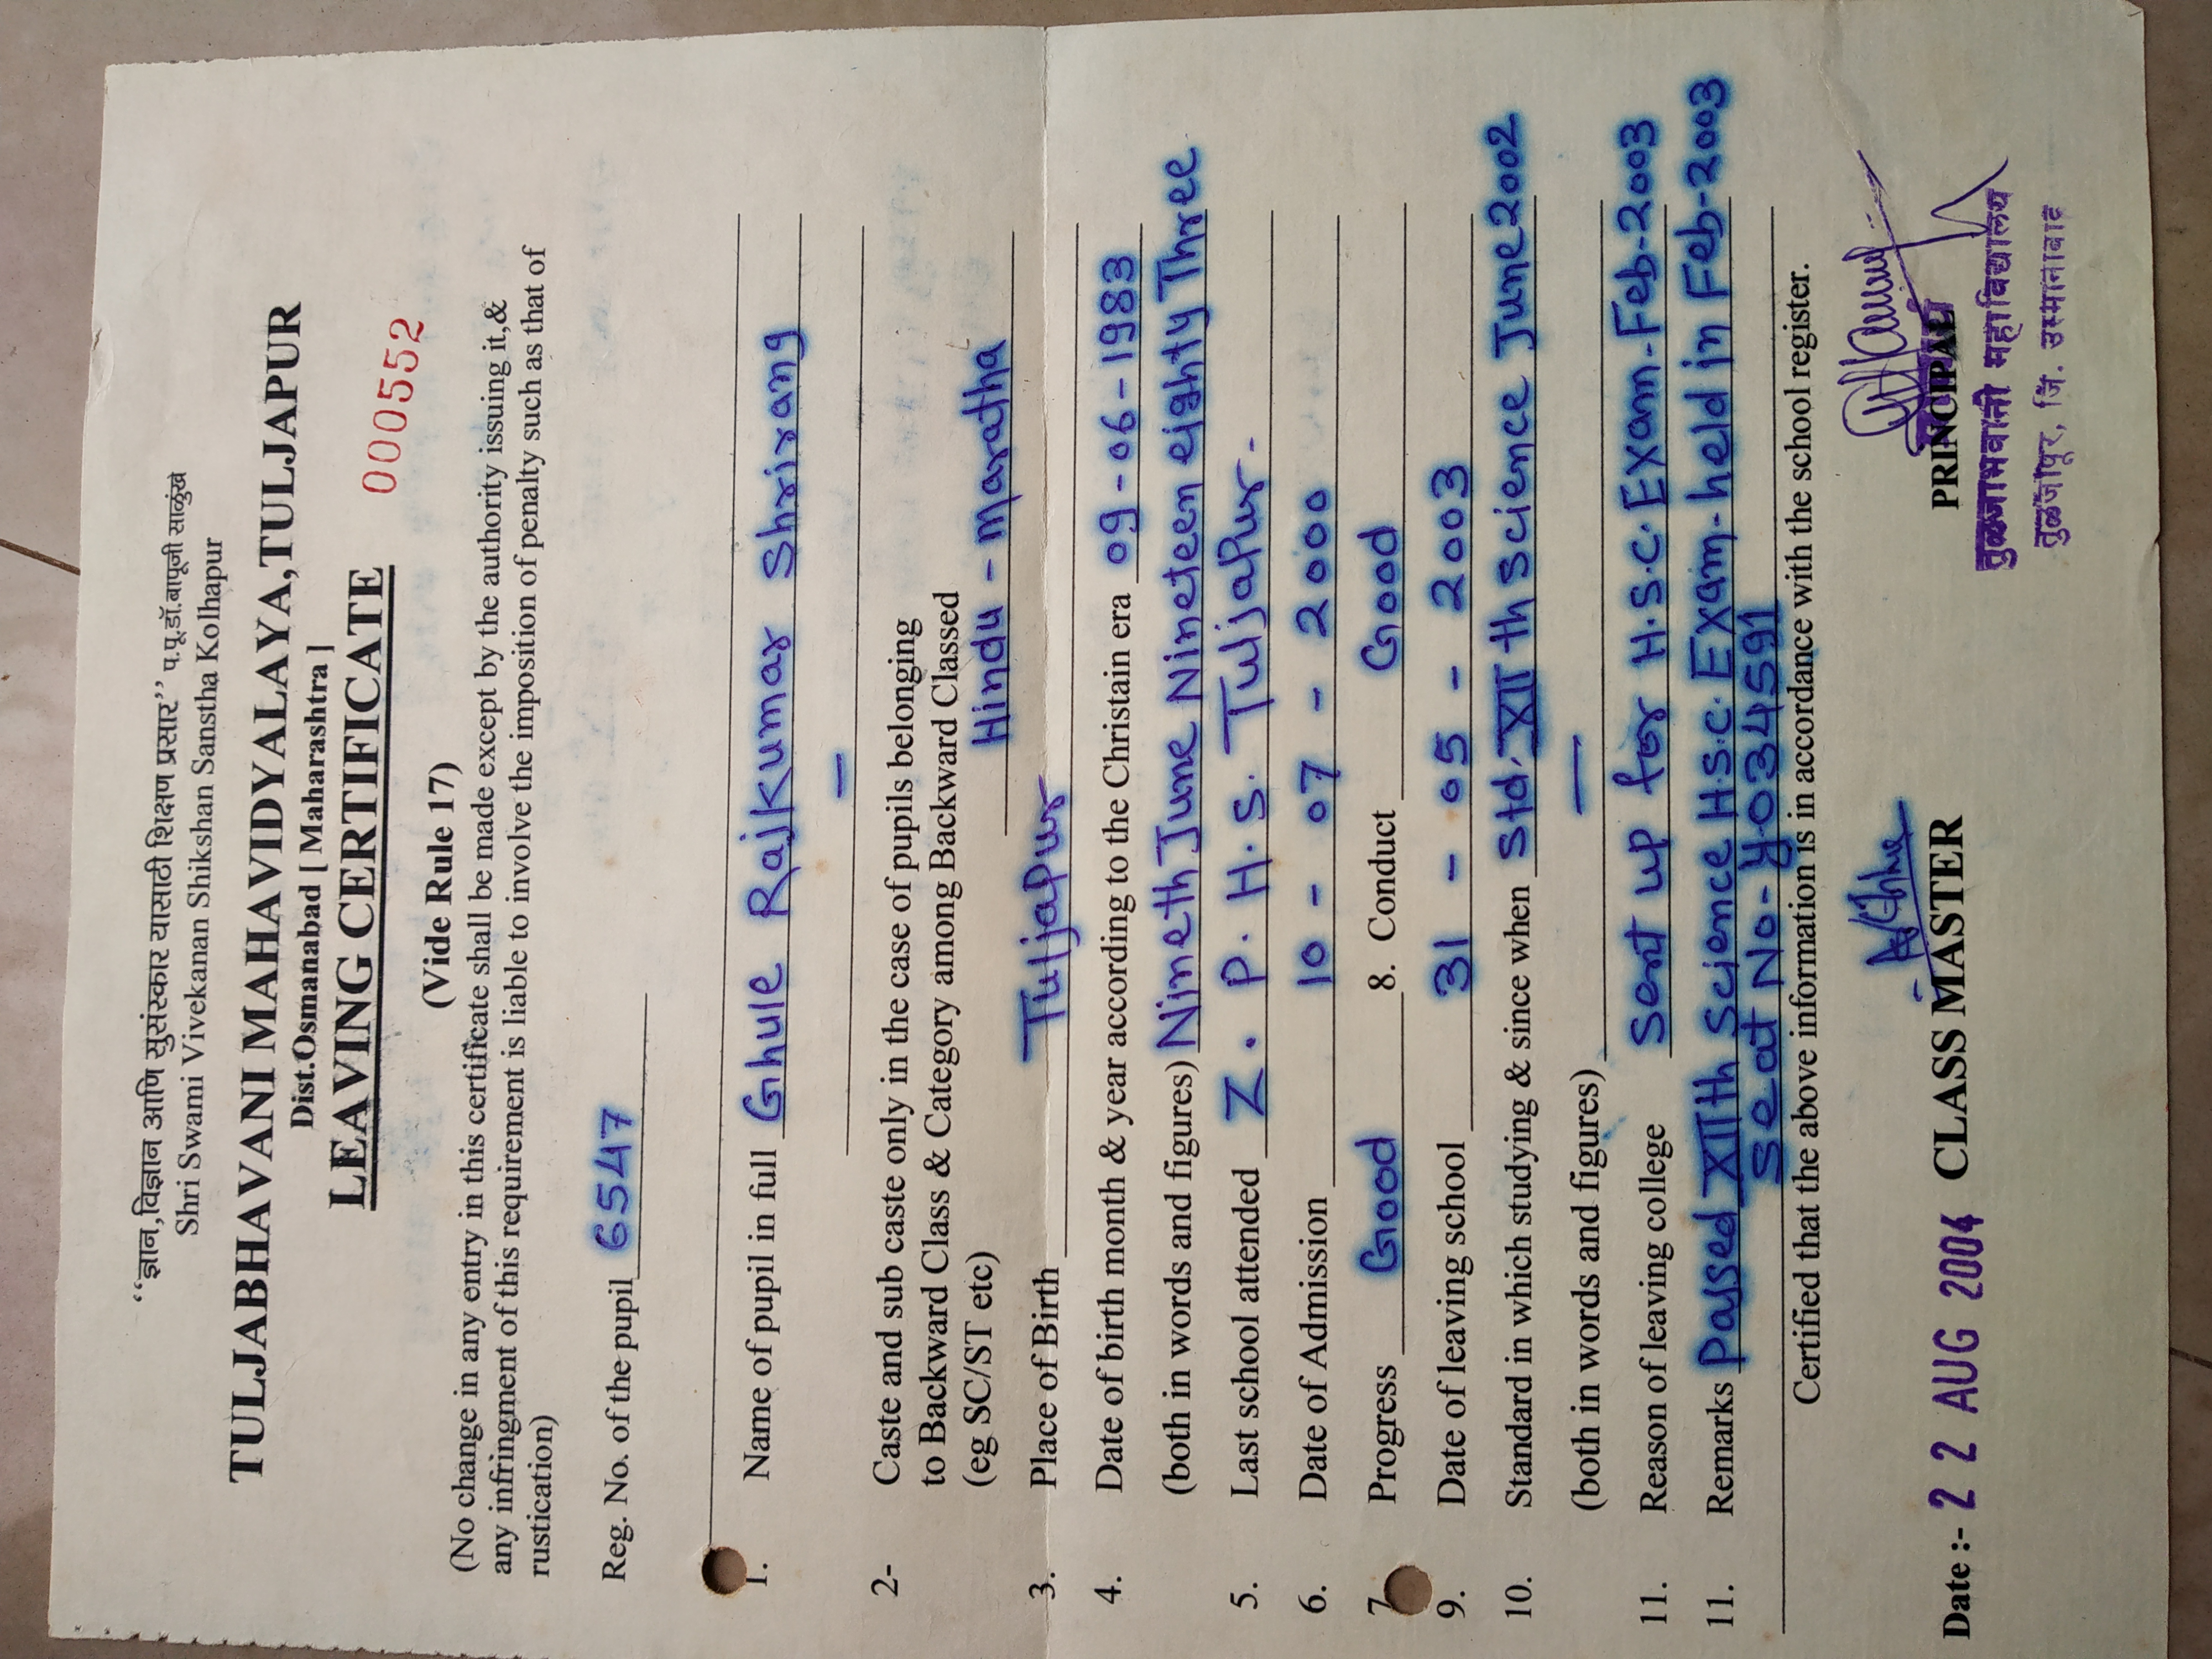 “ज्ञान,विज्ञान आणि सुसंस्कार यासाठी शिक्षण प्रसार” प.पू.डॉ.बापूजी साळुंखे
Shri Swami Vivekanan Shikshan Sanstha Kolhapur
TULJABHAVANI MAHAVIDYALAYA,TULJAPUR
Dist.Osmanabad [ Maharashtra ]
LEAVING CERTIFICATE
000552
(Vide Rule 17)
(No change in any entry in this certificate shall be made except by the authority issuing it,&
any infringment of this requirement is liable to involve the imposition of penalty such as that of
rustication)
Reg. No. of the pupil 65547
1. Name of pupil in full Ghule Rajkumar Shrirang
—
2- Caste and sub caste only in the case of pupils belonging
to Backward Class & Category among Backward Classed
(eg SC/ST etc) Hindu - Maratha
3. Place of Birth Tuljapur
4. Date of birth month & year according to the Christain era 09-06-1983
(both in words and figures) Nineth June Nineteen eighty Three
5. Last school attended Z. P. H. S. Tuljapur.
6. Date of Admission 10 - 07 - 2000
7. Progress Good 8. Conduct Good
9. Date of leaving school 31 - 05 - 2003
10. Standard in which studying & since when Std. XII th Science June 2002
(both in words and figures) —
11. Reason of leaving college Sent up for H.S.C. Exam. Feb-2003
11. Remarks Passed XIIth Science H.S.C. Exam- held in Feb-2003
Seat No- Y.034591
Certified that the above information is in accordance with the school register.
Date :- 2 2 AUG 2004 CLASS MASTER PRINCIPAL
तुळजाभवानी महाविद्यालय
तुळजापूर, जि. उस्मानाबाद